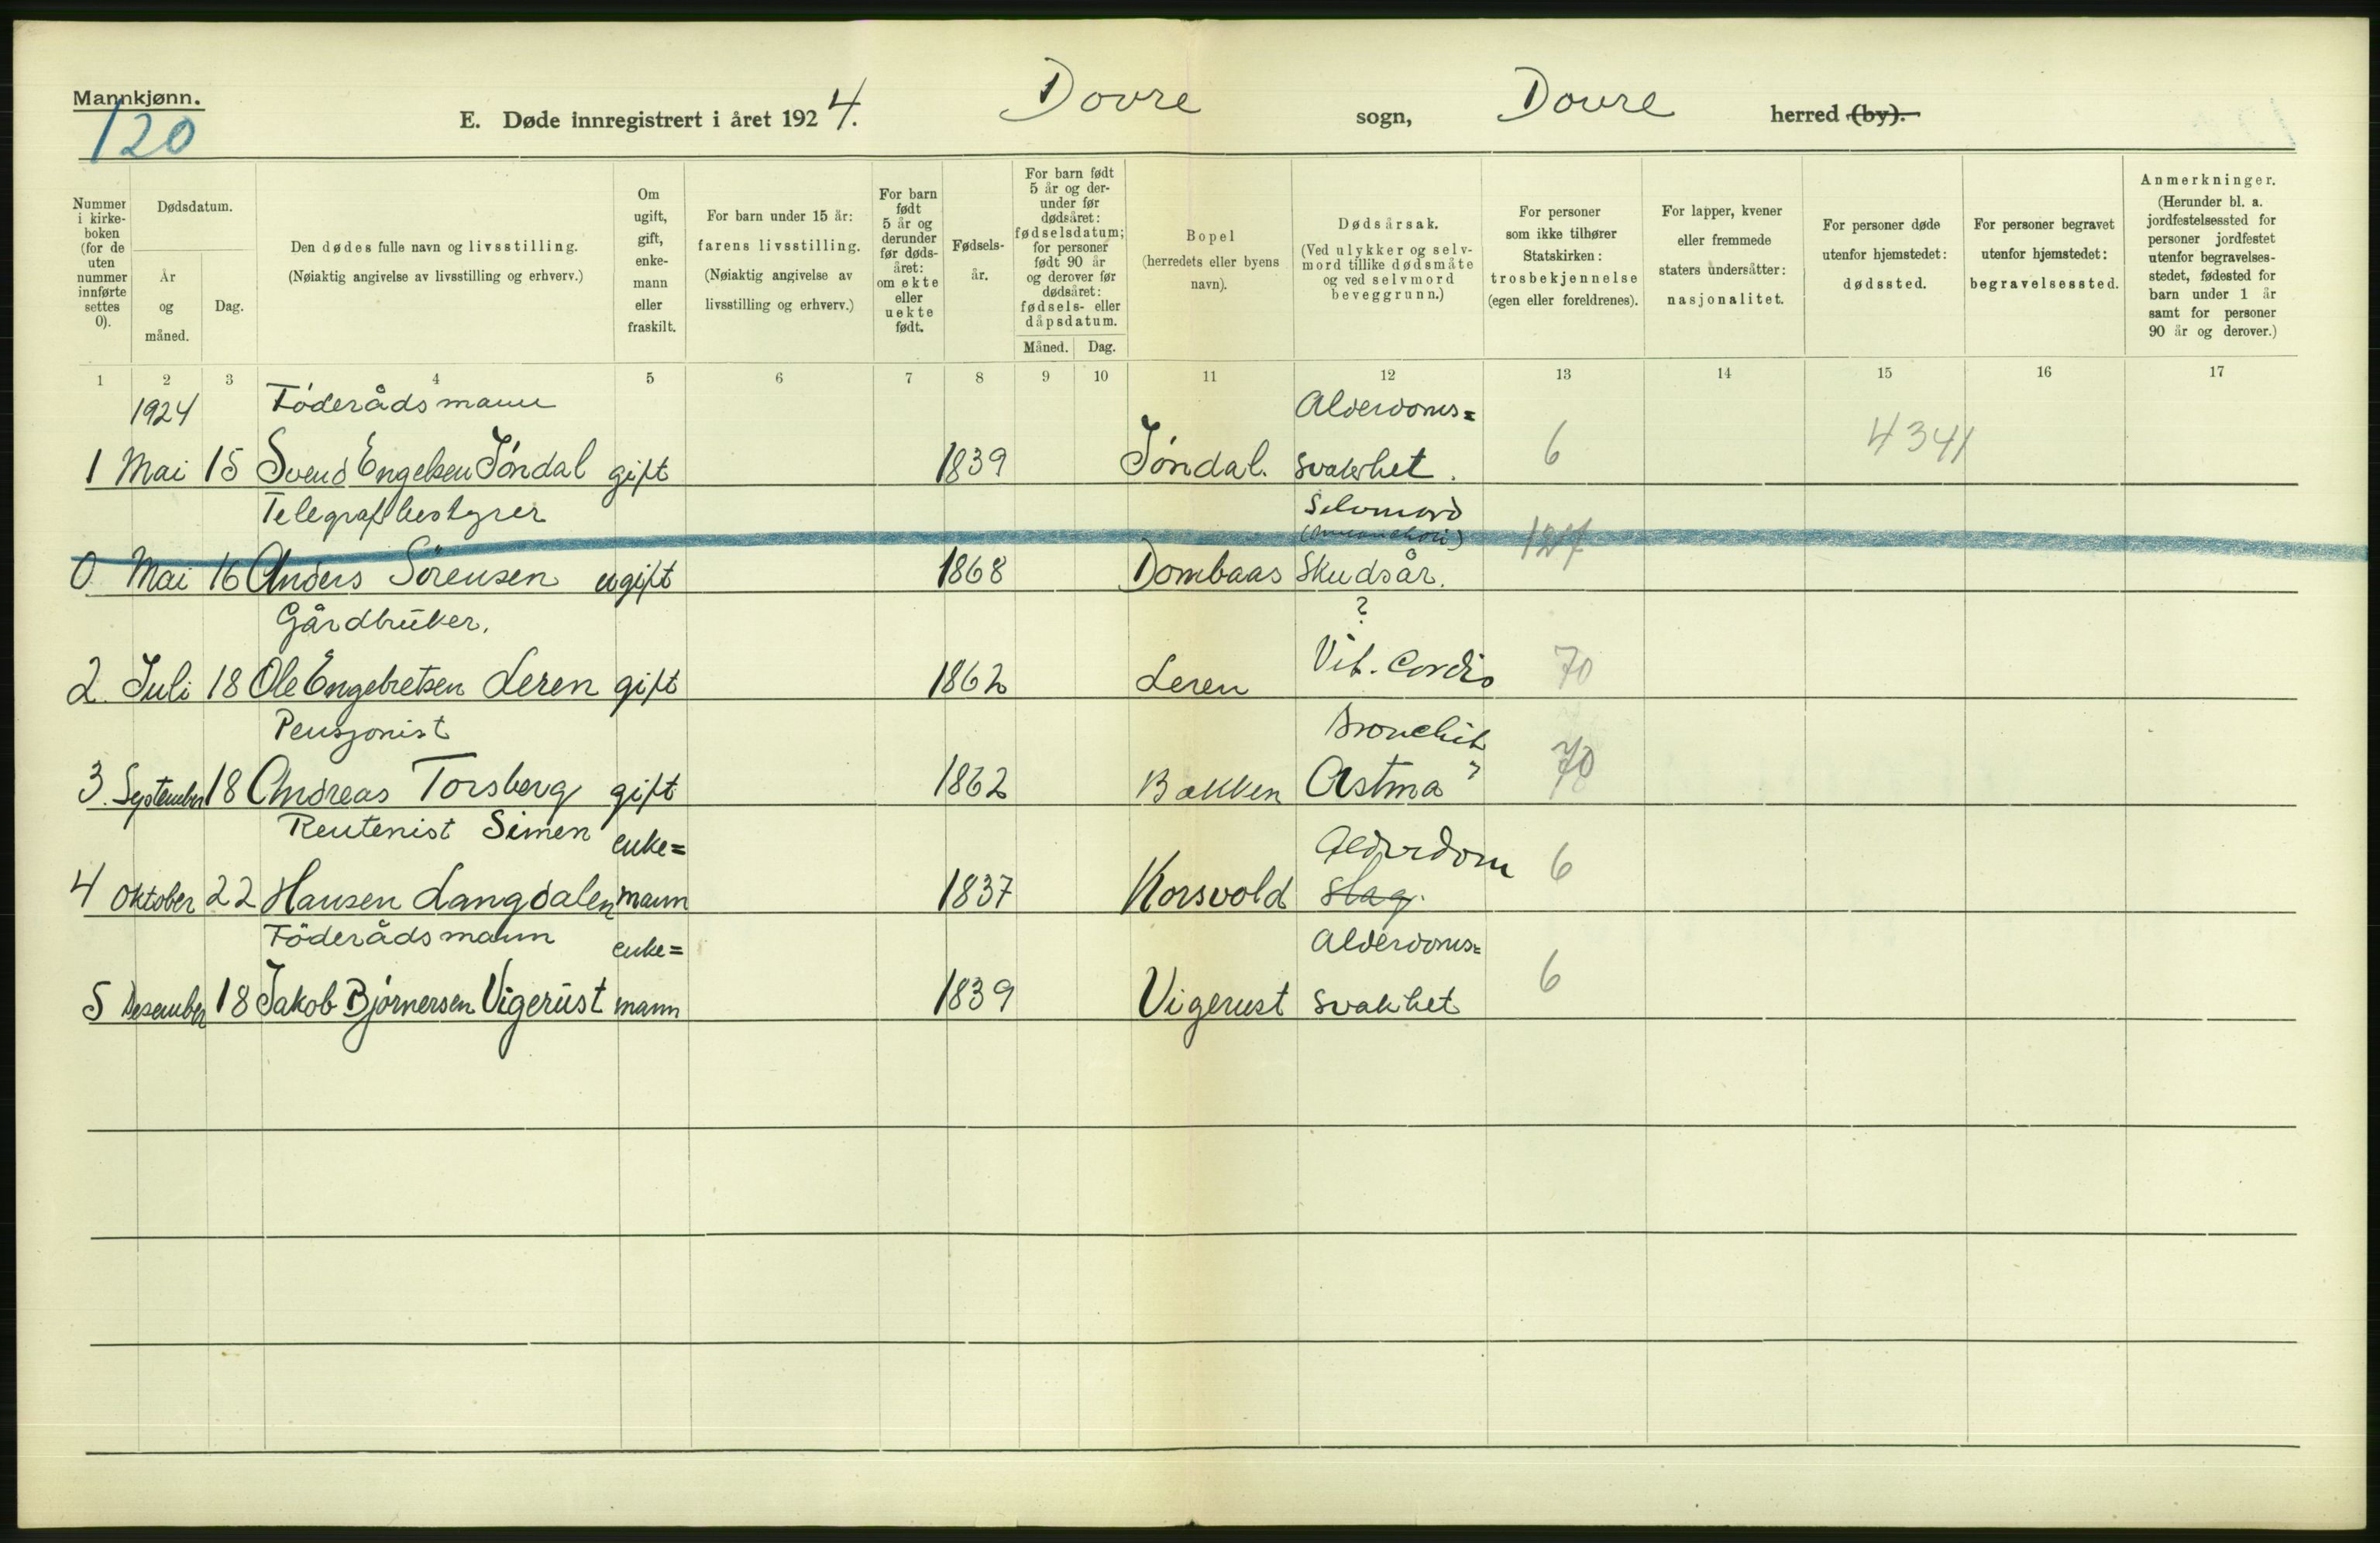 Mannkjønn.
120
E. Døde innregistrert i året 1924.
Dovre sogn, Dovre herred (by).
Nummer i kirke-boken (for de uten nummer innførte settes 0).
Dødsdatum.
År og måned.
Dag.
Den dødes fulle navn og livsstilling.
(Nøiaktig angivelse av livsstilling og erhverv.)
Om ugift, gift, enke-mann eller fraskilt.
For barn under 15 år:
farens livsstilling.
(Nøiaktig angivelse av livsstilling og erhverv.)
For barn født 5 år og derunder før døds-året: om ekte eller uekte født.
Fødsels-år.
For barn født 5 år og der-under før dødsåret: fødselsdatum; for personer født 90 år og derover før dødsåret: fødsels- eller dåpsdatum.
Måned. Dag.
Bopel
(herredets eller byens navn).
Dødsårsak.
(Ved ulykker og selv-mord tillike dødsmåte og ved selvmord beveggrunn.)
For personer som ikke tilhører Statskirken:
trosbekjennelse
(egen eller foreldrenes).
For lapper, kvener eller fremmede staters undersåtter:
nasjonalitet.
For personer døde utenfor hjemstedet:
dødssted.
For personer begravet utenfor hjemstedet:
begravelsessted.
Anmerkninger.
(Herunder bl. a. jordfestelsessted for personer jordfestet utenfor begravelses-stedet, fødested for barn under 1 år samt for personer 90 år og derover.)
1 2 3 4 5 6 7 8 9 10 11 12 13 14 15 16 17
1924 Föderådsmann Alderdoms=
1 Mai 15 Svend Engelsen Jöndal gift 1839 Jöndal. svakhet. 6 4341
Telegrafbestyrer Selvmord
0 Mai 16 Anders Sörensen ugift 1868 Dombaas Skudsår. 127
Gårdbruker. ?
2. Juli 18 Ole Engebretsen Leren gift 1862 Leren Vit. Cordis 70
Pensjonist Bronchit
3. September 18 Andreas Torsberg gift 1862 Bakken Astma ? 70
Rentenist Simen enke= Alderdom
4 Oktober 22 Hansen Langdalen mann 1837 Korsvold Slag. 6
Föderådsmann enke= Alderdoms=
5 Desember 18 Jakob Björnersen Vigerust mann 1839 Vigerust svakhet 6